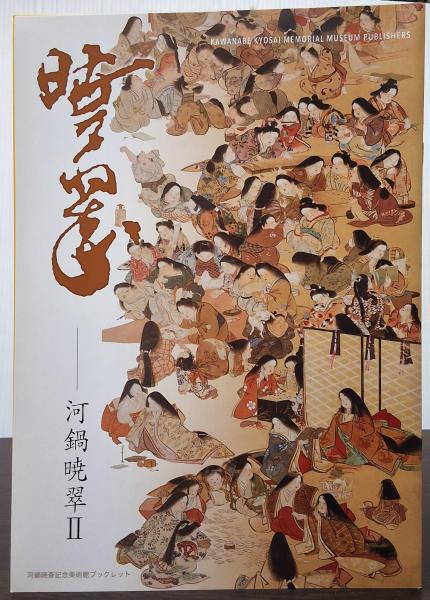 KAWANABE KYOSAI MEMORIAL MUSEUM PUBLISHERS
暁翠
河鍋暁翠 II
河鍋暁斎記念美術館ブックレット